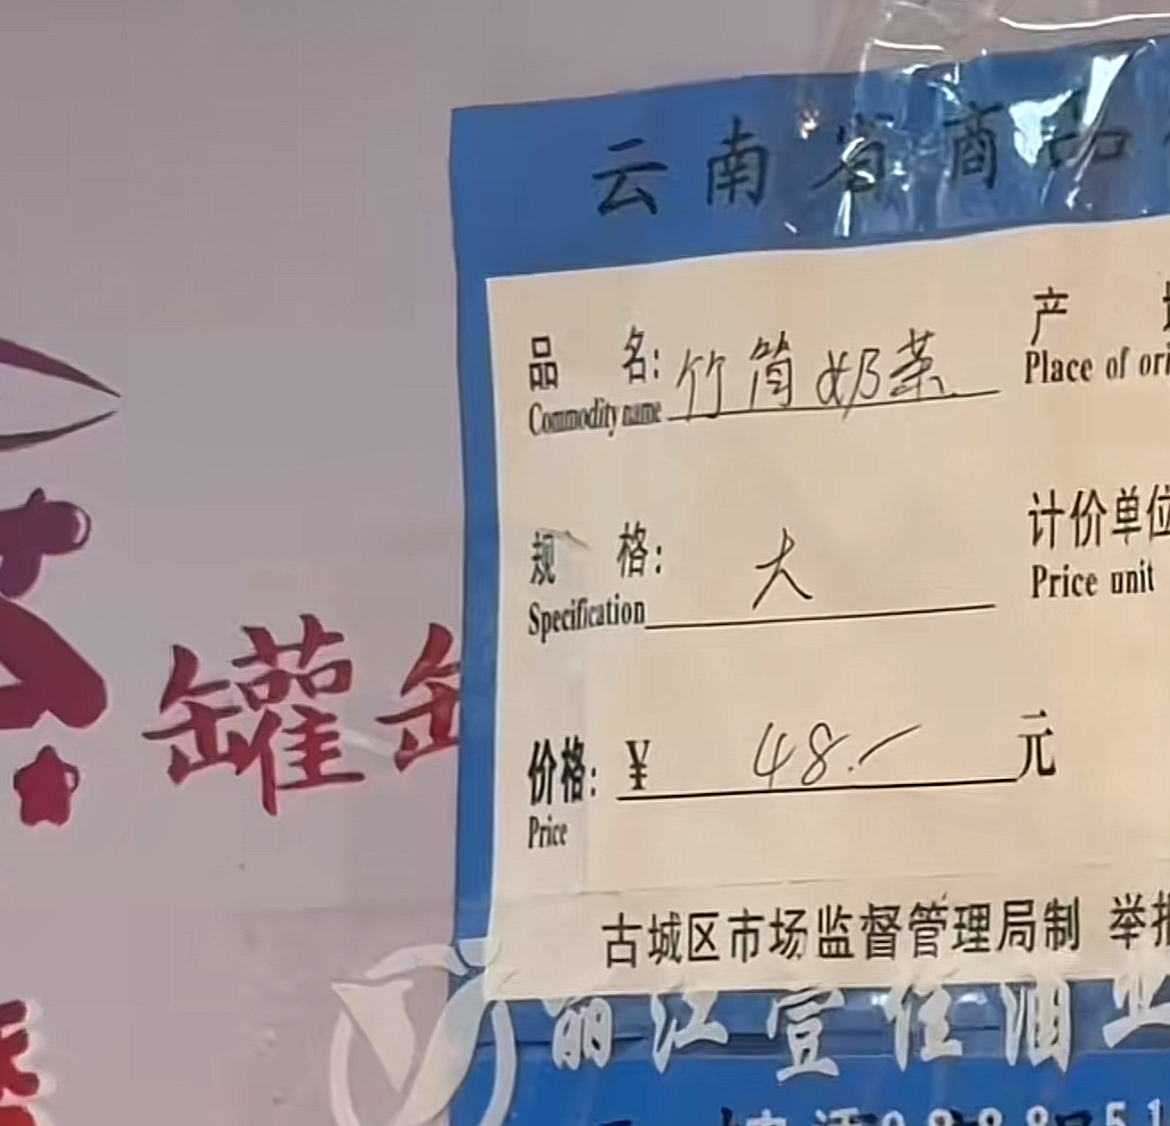 云南省商品
品 名: 竹筒奶茶
Commodity name
产
Place of ori
规 格: 大
Specification
计价单位
Price unit
价格: ¥ 48.- 元
Price
罐罐
古城区市场监督管理局制 举报
丽江壹佳酒业
电话0888-51